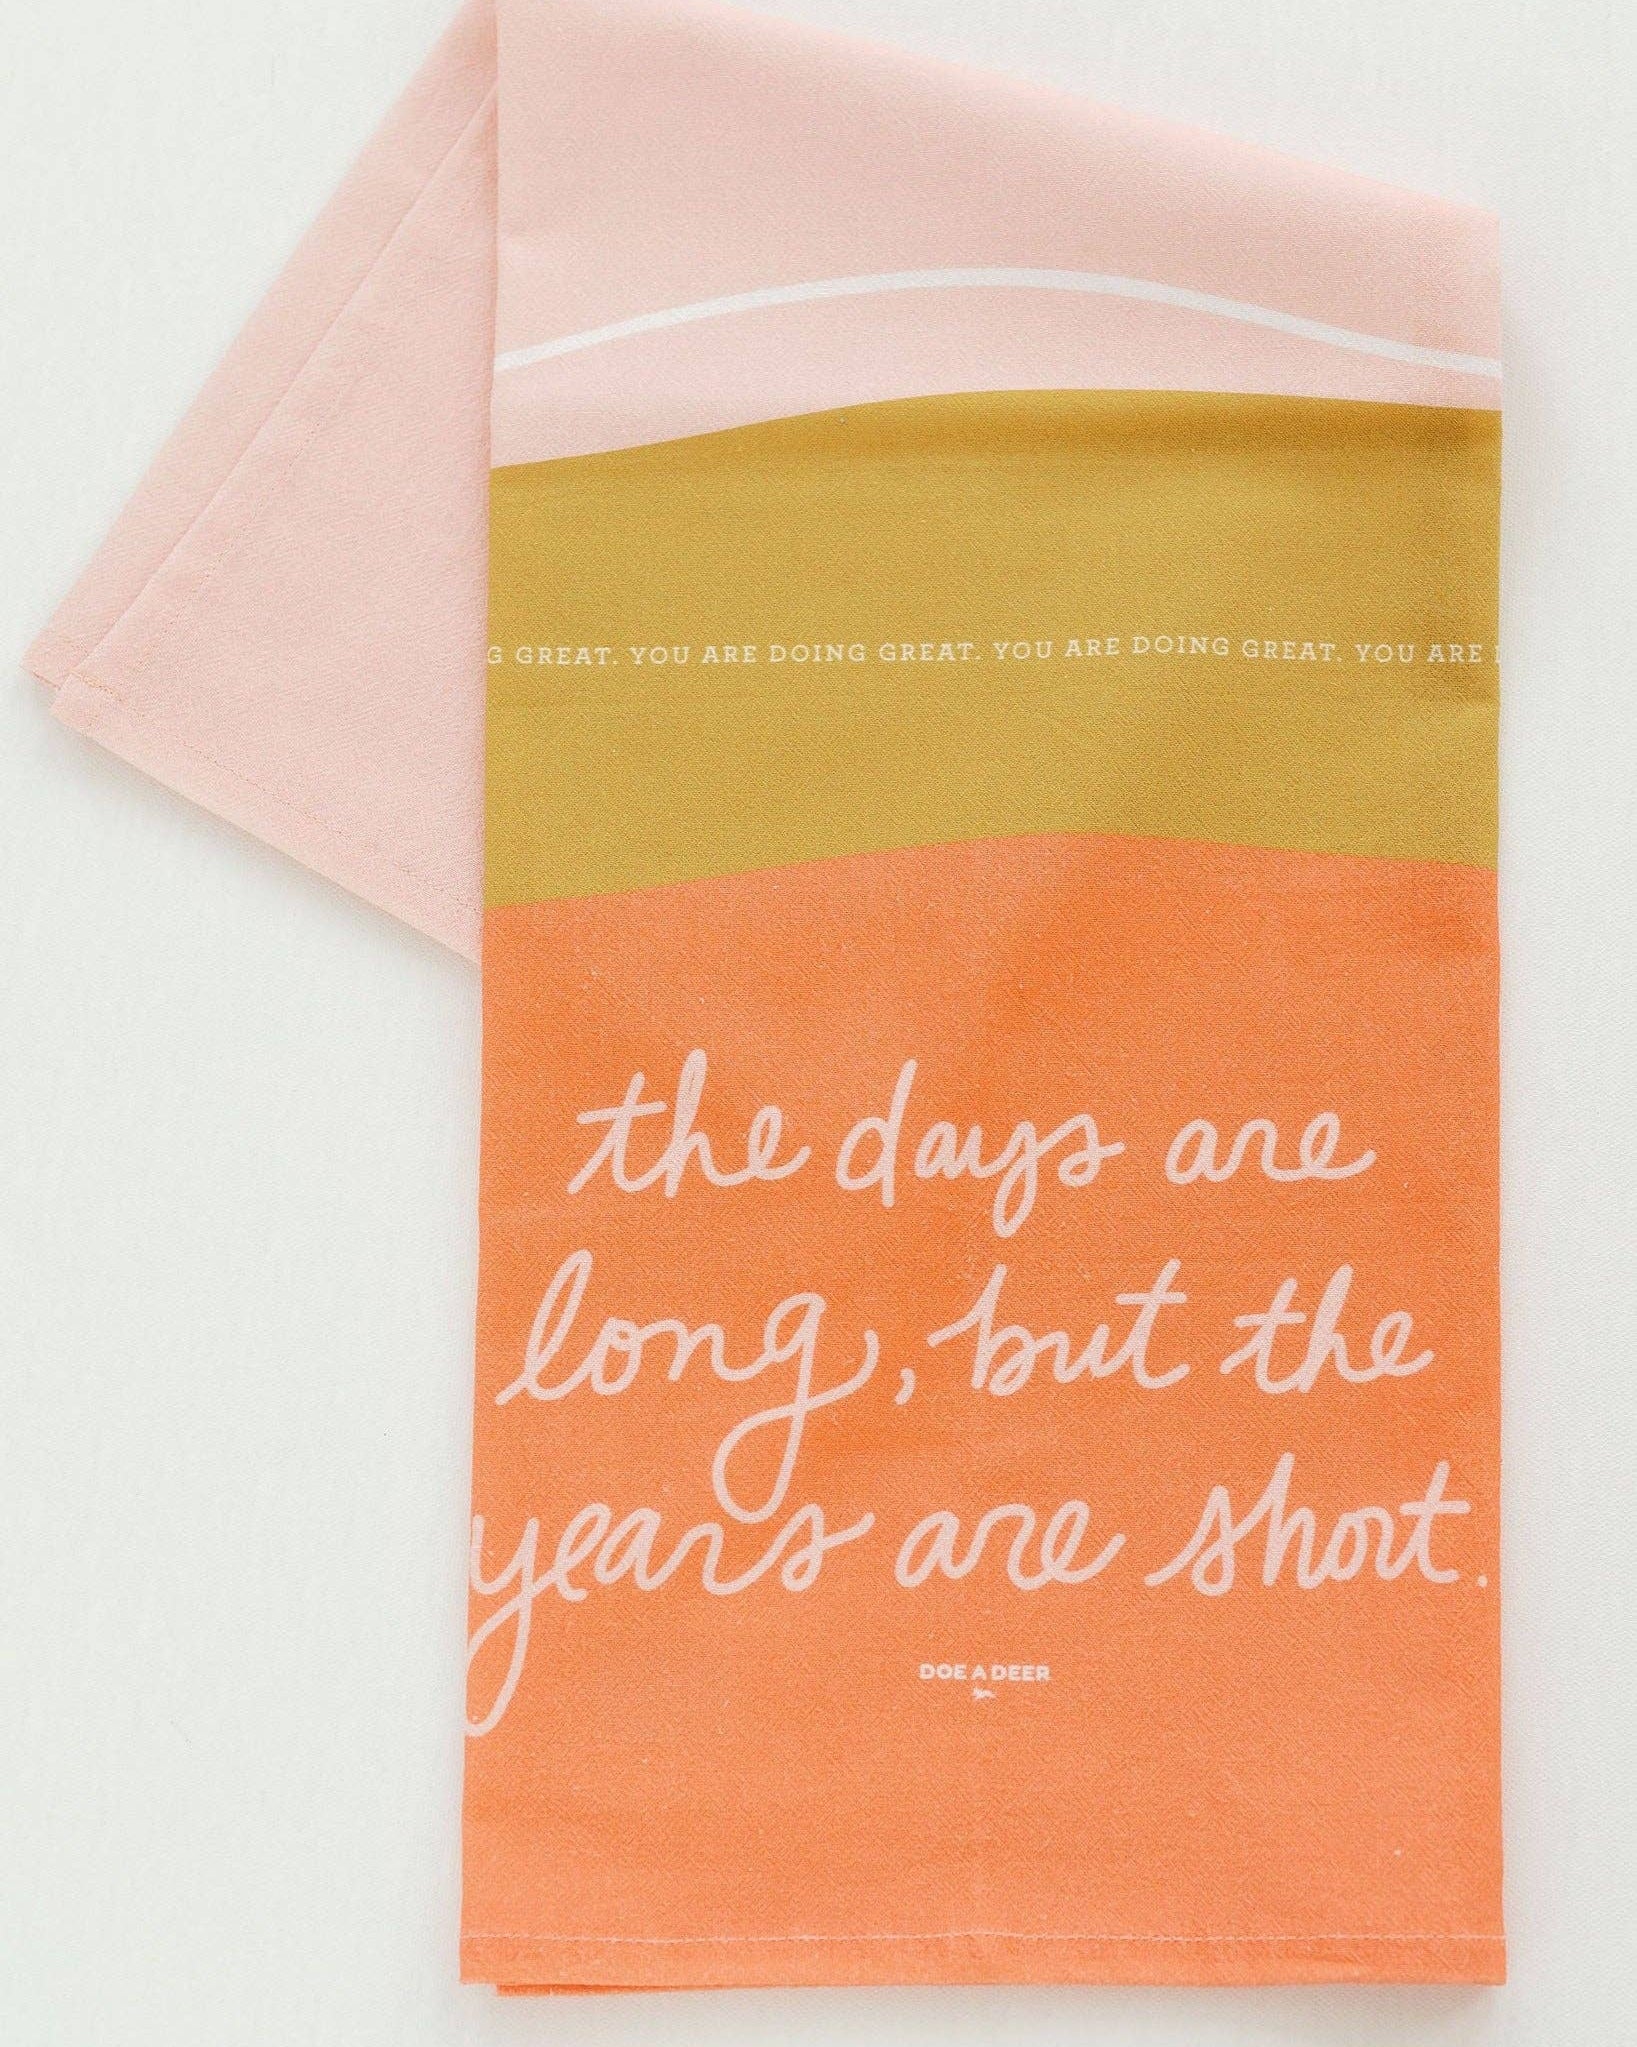 G GREAT. YOU ARE DOING GREAT. YOU ARE DOING GREAT. YOU ARE
the days are
long, but the
years are short.
DOE A DEER